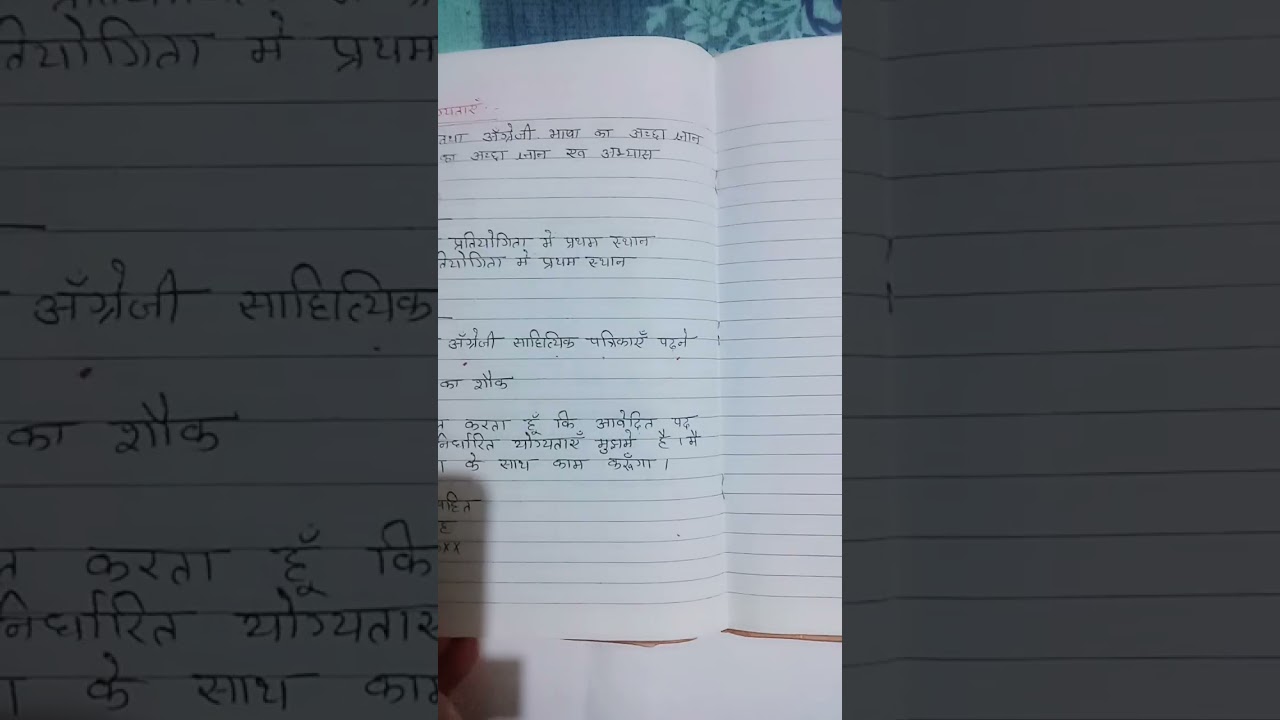 तथा अँग्रेजी भाषा का अच्छा ज्ञान
का अच्छा ज्ञान एव अभ्यास
प्रतियोगिता में प्रथम स्थान
तियोगिता में प्रथम स्थान
अँग्रेजी साहित्यिक पत्रिकाएँ पढ़ने
का शौक
करता हूँ कि आवेदित पद
निर्धारित योग्यताएँ मुझमे है । मै
के साथ काम करूँगा ।